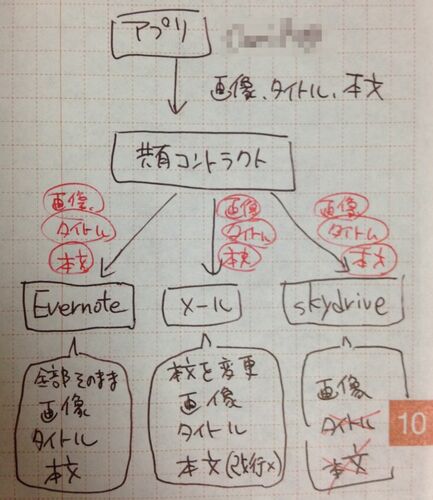 アプリ
画像、タイトル、本文
共有コントラクト
画像
タイトル
本文
画像
タイトル
本文
画像
タイトル
本文
Evernote
メール
skydrive
全部そのまま
画像
タイトル
本文
本文を変更
画像
タイトル
本文(改行×)
画像
タイトル
本文
10